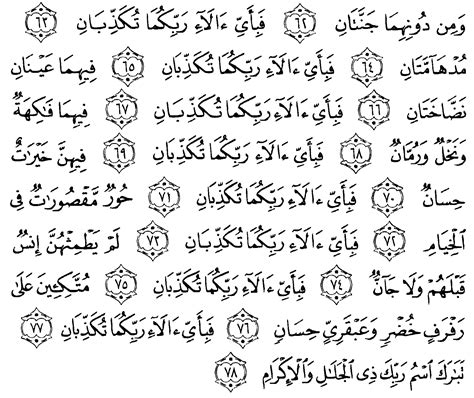 وَمِن دُونِهِمَا جَنَّتَانِ ﴿٦٢﴾ فَبِأَيِّ ءَالَآءِ رَبِّكُمَا تُكَذِّبَانِ ﴿٦٣﴾
مُدْهَآمَّتَانِ ﴿٦٤﴾ فَبِأَيِّ ءَالَآءِ رَبِّكُمَا تُكَذِّبَانِ ﴿٦٥﴾ فِيهِمَا عَيْنَانِ
نَضَّاخَتَانِ ﴿٦٦﴾ فَبِأَيِّ ءَالَآءِ رَبِّكُمَا تُكَذِّبَانِ ﴿٦٧﴾ فِيهِمَا فَٰكِهَةٌ
وَنَخْلٌ وَرُمَّانٌ ﴿٦٨﴾ فَبِأَيِّ ءَالَآءِ رَبِّكُمَا تُكَذِّبَانِ ﴿٦٩﴾ فِيهِنَّ خَيْرَٰتٌ
حِسَانٌ ﴿٧٠﴾ فَبِأَيِّ ءَالَآءِ رَبِّكُمَا تُكَذِّبَانِ ﴿٧١﴾ حُورٌ مَّقْصُورَٰتٌ فِى
الْخِيَامِ ﴿٧٢﴾ فَبِأَيِّ ءَالَآءِ رَبِّكُمَا تُكَذِّبَانِ ﴿٧٣﴾ لَمْ يَطْمِثْهُنَّ إِنسٌ
قَبْلَهُمْ وَلَا جَآنٌّ ﴿٧٤﴾ فَبِأَيِّ ءَالَآءِ رَبِّكُمَا تُكَذِّبَانِ ﴿٧٥﴾ مُتَّكِـِٔينَ عَلَىٰ
رَفْرَفٍ خُضْرٍ وَعَبْقَرِيٍّ حِسَانٍ ﴿٧٦﴾ فَبِأَيِّ ءَالَآءِ رَبِّكُمَا تُكَذِّبَانِ ﴿٧٧﴾
تَبَٰرَكَ ٱسْمُ رَبِّكَ ذِى ٱلْجَلَٰلِ وَٱلْإِكْرَامِ ﴿٧٨﴾